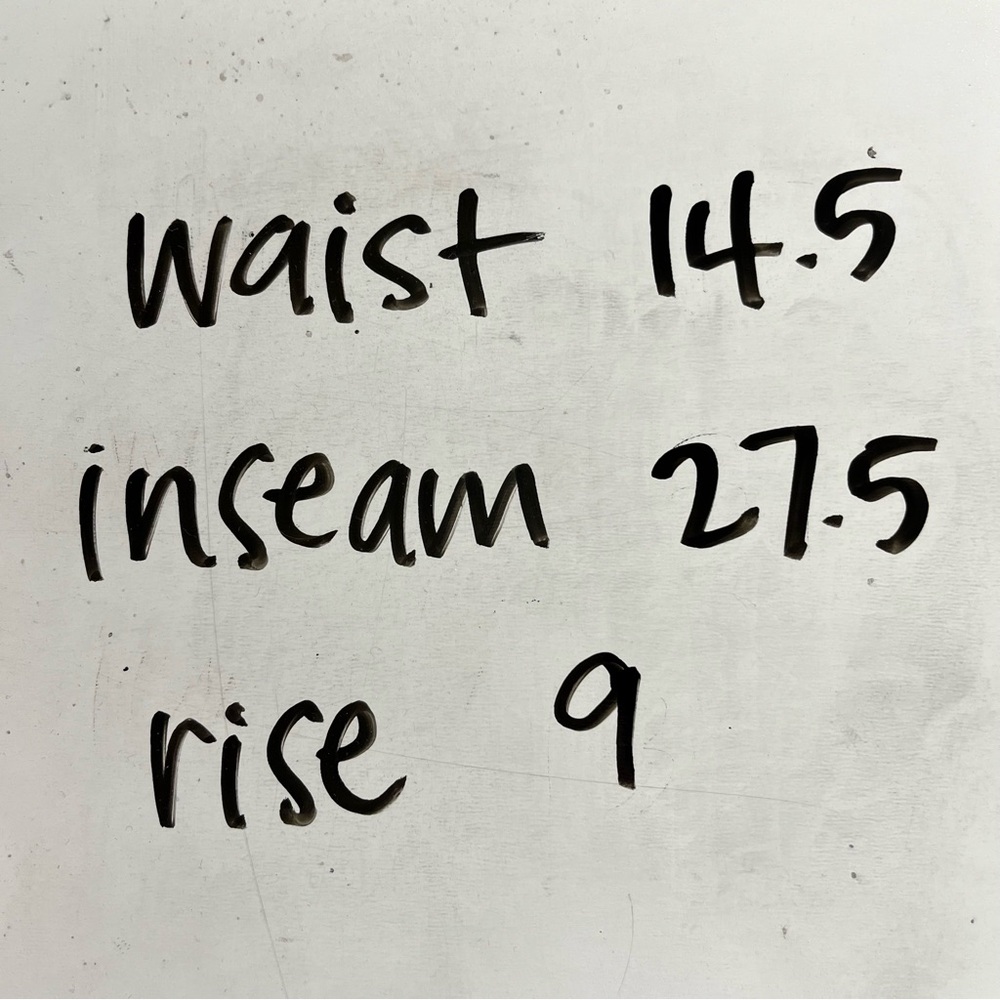 waist 14.5
inseam 27.5
rise 9